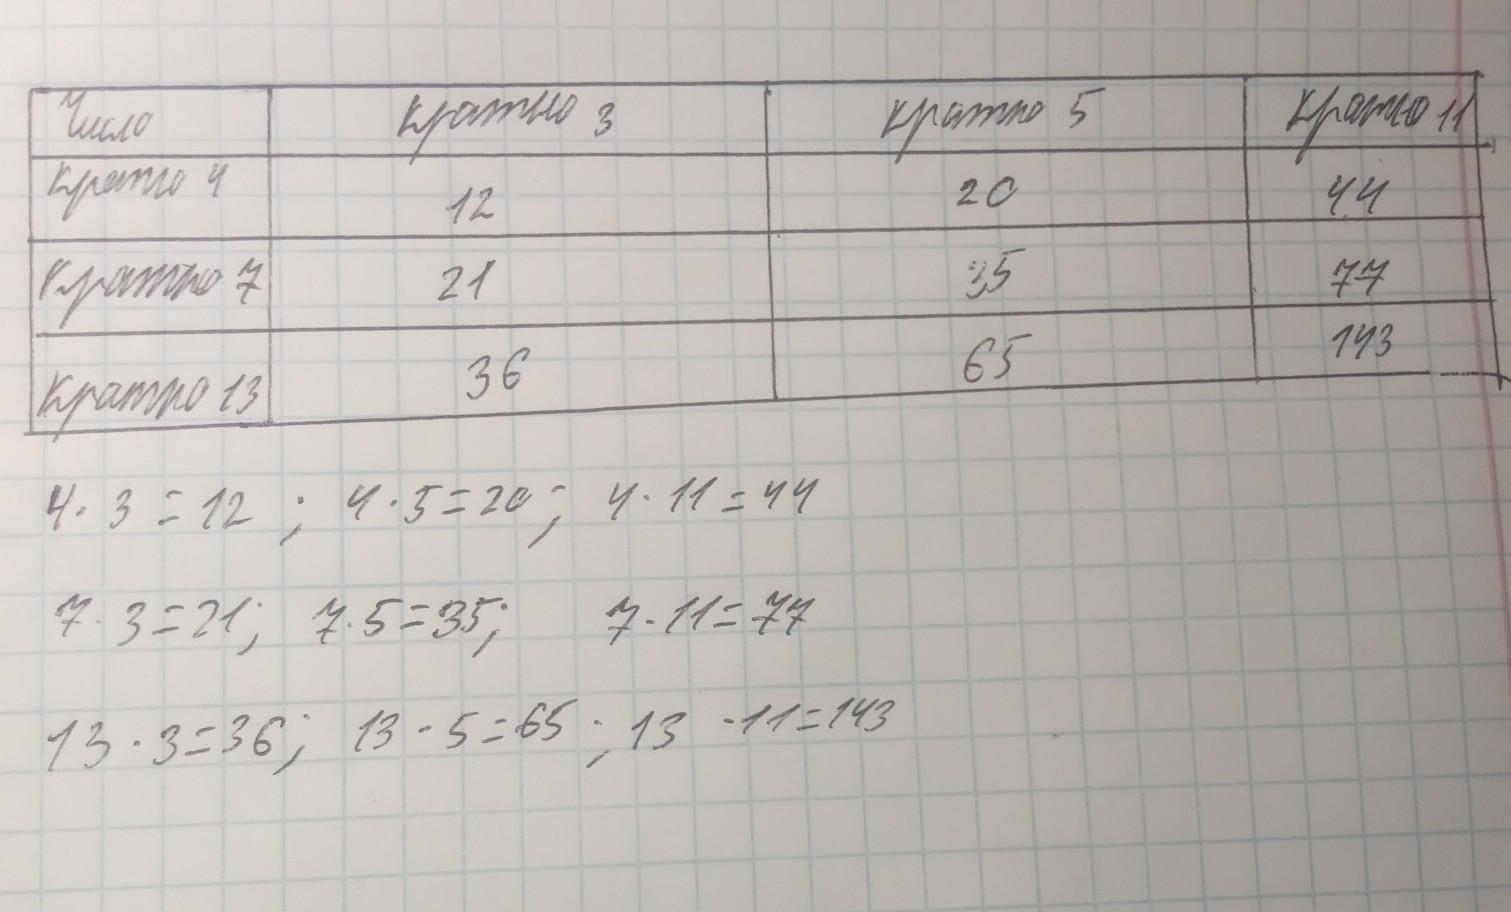 Число кратно 3 кратно 5 кратно 11
кратно 4 12 20 44
кратно 7 21 35 77
кратно 13 36 65 143
4 · 3 = 12 ; 4 · 5 = 20 ; 4 · 11 = 44
7 · 3 = 21 ; 7 · 5 = 35 ; 7 · 11 = 77
13 · 3 = 36 ; 13 · 5 = 65 ; 13 · 11 = 143